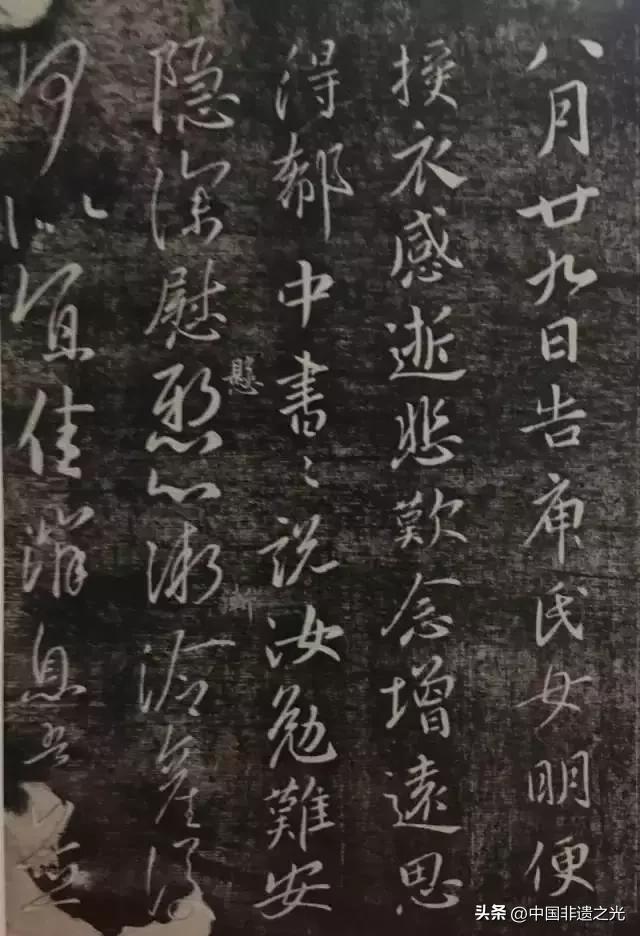 八月廿九日告庾氏女明便
授衣感逝悲歎念增遠思
得郗中書〻說汝勉難安
隱深慰懸心漸冷產後
懸
何似宜佳消息吾
头条 @中国非遗之光